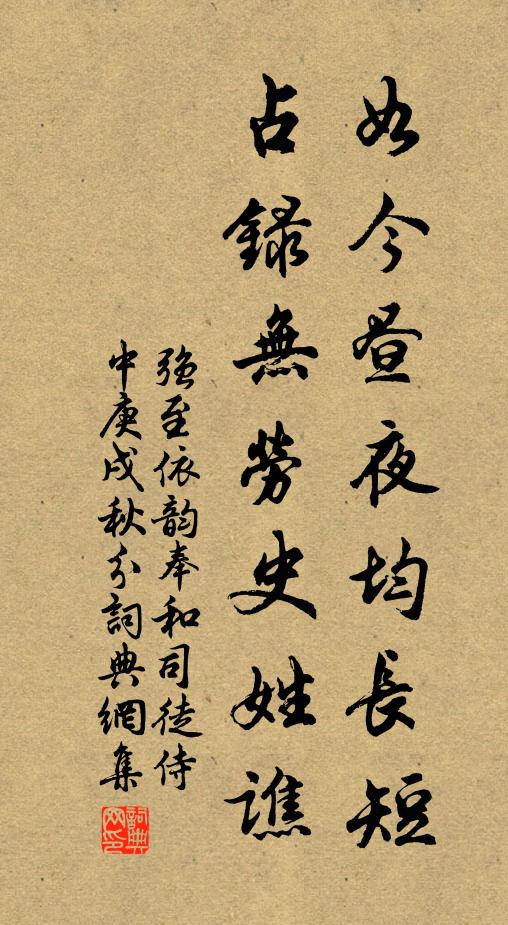 如今昼夜均長短
占録無勞史姓譙
强至依韵奉和司徒侍
中庚戌秋分詞典網集
詞典
网印